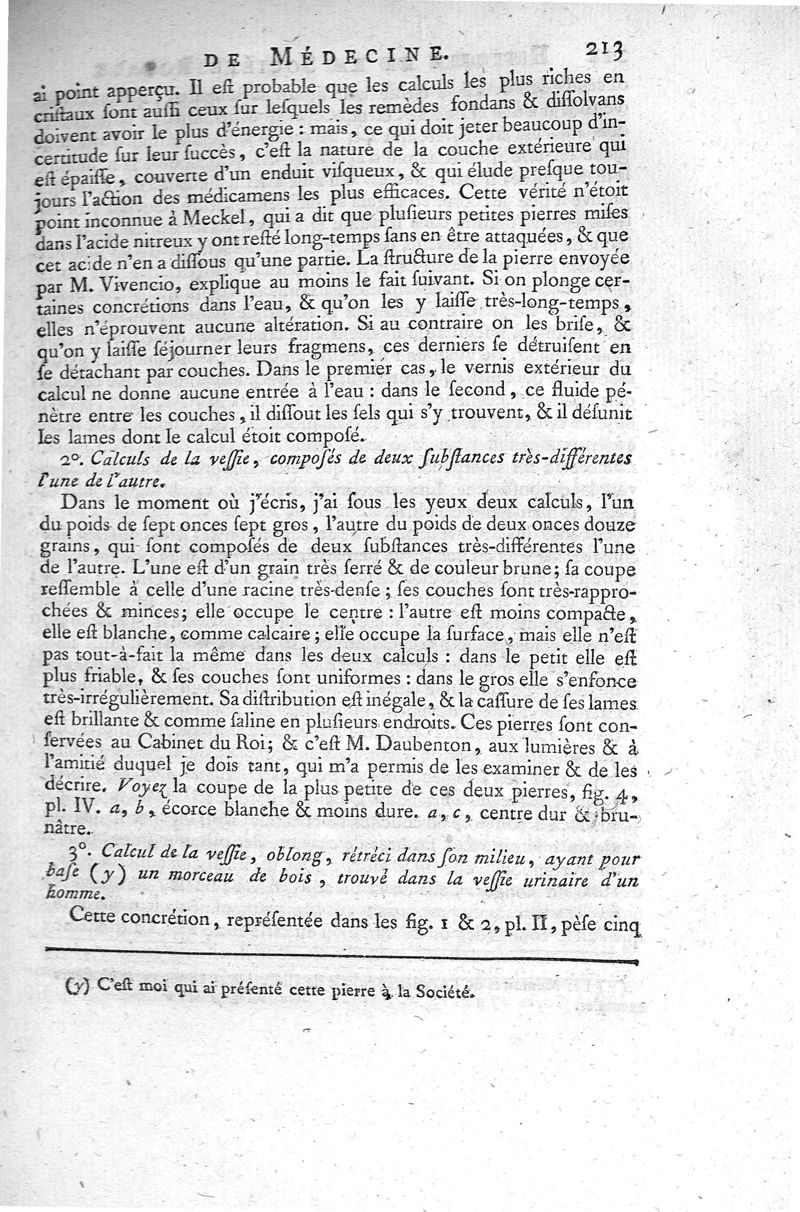 DE MÉDECINE. 213
ai point apperçu. Il eſt probable que les calculs les plus riches en
criſtaux ſont auſſi ceux ſur leſquels les remèdes fondans & diſſolvans
doivent avoir le plus d'énergie : mais, ce qui doit jeter beaucoup d'in-
certitude ſur leur ſuccès, c'eſt la nature de la couche extérieure qui
eſt épaiſſe, couverte d'un enduit viſqueux, & qui élude preſque tou-
jours l'action des médicamens les plus efficaces. Cette vérité n'étoit
point inconnue à Meckel, qui a dit que pluſieurs petites pierres miſes
dans l'acide nitreux y ont reſté long-temps ſans en être attaquées, & que
cet acide n'en a diſſous qu'une partie. La ſtructure de la pierre envoyée
par M. Vivencio, explique au moins le fait ſuivant. Si on plonge cer-
taines concrétions dans l'eau, & qu'on les y laiſſe très-long-temps,
elles n'éprouvent aucune altération. Si au contraire on les briſe, &
qu'on y laiſſe ſéjourner leurs fragmens, ces derniers ſe détruiſent en
ſe détachant par couches. Dans le premier cas, le vernis extérieur du
calcul ne donne aucune entrée à l'eau : dans le ſecond, ce fluide pé-
nètre entre les couches, il diſſout les ſels qui s'y trouvent, & il déſunit
les lames dont le calcul étoit compoſé.
2°. Calculs de la veſſie, compoſés de deux ſubſtances très-différentes
l'une de l'autre.
Dans le moment où j'écris, j'ai ſous les yeux deux calculs, l'un
du poids de ſept onces ſept gros, l'autre du poids de deux onces douze
grains, qui ſont compoſés de deux ſubſtances très-différentes l'une
de l'autre. L'une eſt d'un grain très ſerré & de couleur brune; ſa coupe
reſſemble à celle d'une racine très-denſe; ſes couches ſont très-rappro-
chées & minces; elle occupe le centre : l'autre eſt moins compacte,
elle eſt blanche, comme calcaire; elle occupe la ſurface, mais elle n'eſt
pas tout-à-fait la même dans les deux calculs : dans le petit elle eſt
plus friable, & ſes couches ſont uniformes : dans le gros elle s'enfonce
très-irrégulièrement. Sa diſtribution eſt inégale, & la caſſure de ſes lames
eſt brillante & comme ſaline en pluſieurs endroits. Ces pierres ſont con-
ſervées au Cabinet du Roi; & c'eſt M. Daubenton, aux lumières & à
l'amitié duquel je dois tant, qui m'a permis de les examiner & de les
décrire. Voyez la coupe de la plus petite de ces deux pierres, fig. 4,
pl. IV. a, b, écorce blanche & moins dure. a, c, centre dur & bru-
nâtre.
3°. Calcul de la veſſie, oblong, rétréci dans ſon milieu, ayant pour
baſe (y) un morceau de bois, trouvé dans la veſſie urinaire d'un
homme.
Cette concrétion, repréſentée dans les fig. 1 & 2, pl. II, pèſe cinq
(y) C'eſt moi qui ai préſenté cette pierre à la Société.